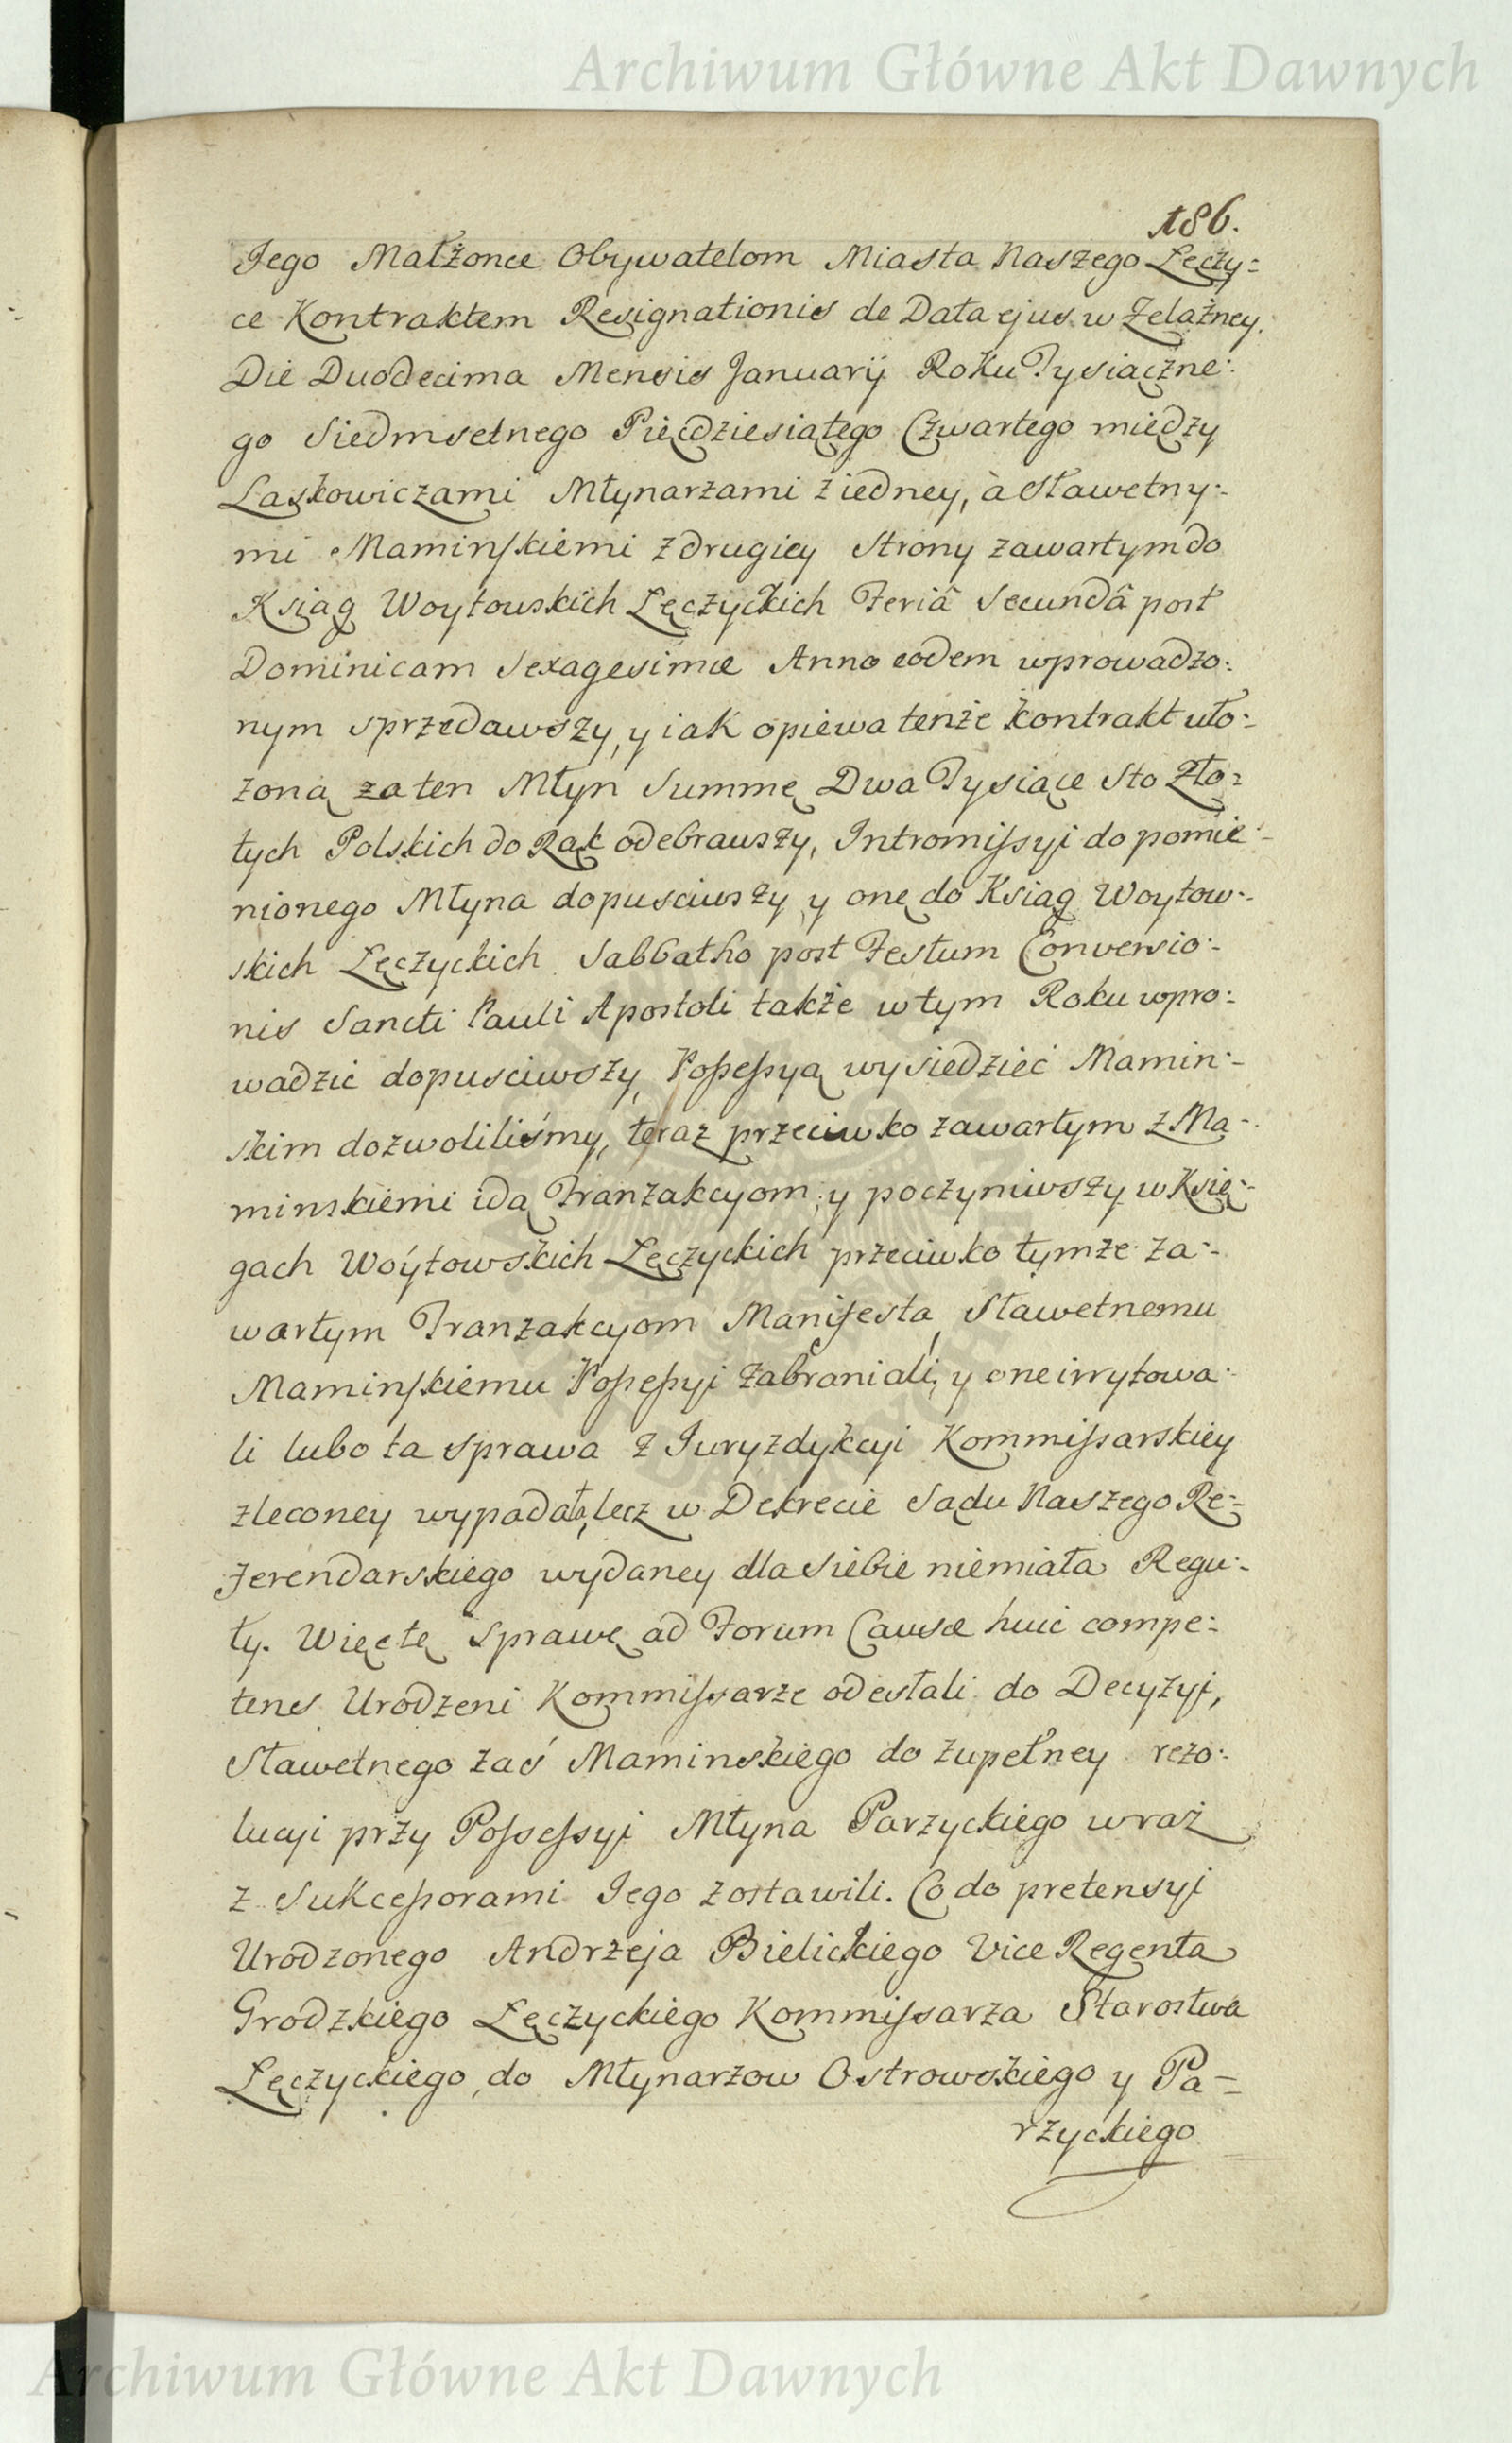 Archiwum Główne Akt Dawnych
186.
Jego Małżonce Obywatelom Miasta Naszego Łęczy=
ce Kontraktem Resignationis de Data ejus w Żelażney.
Die Duodecima Mensis Januarij Roku Tysiączne:
go Siedmsetnego Pięćdziesiątego Czwartego między
Laskowiczami Młynarzami z iedney, à Sławetny:
mi Maminskiemi z drugiey Strony zawartym do
Ksiąg Woytowskich Łęczyckich Feriâ Secundâ post
Dominicam Sexagesimæ Anno eodem wprowadzo:
nym sprzedawszy, y iak opiewa tenże kontrakt uło:
żoną za ten Młyn Summę Dwa Tysiące Sto Zło=
tych Polskich do Rąk odebrawszy, Intromissyi do pomie:
nionego Młyna dopusciwszy y onę do Ksiąg Woytow:
skich Łęczyckich Sabbatho post Festum Conversio:
nis Sancti Pauli Apostoli także w tym Roku wpro:
wadzić dopusciwszy, Possessyą wysiedzieć Mamin:
skim dozwoliliśmy, teraz przeciwko zawartym z Ma:
minskiemi idą Tranzakcyom, y poczyniwszy w Księ:
gach Woytowskich Łęczyckich przeciwko tymże za:
wartym Tranzakcyom Manifesta, Sławetnemu
Maminskiemu Possessyi zabraniali, y one irrytowa:
li lubo ta sprawa z Juryzdykcyi Kommissarskiey
zleconey wypadała, lecz w Dekrecie Sądu Naszego Re=
ferendarskiego wydaney dla siebie niemiała Regu:
ły. Więc tę sprawę ad Forum Causæ huic compe:
tens Urodzeni Kommissarze odesłali do Decyzyi,
Sławetnego zaś Maminskiego do zupełney rezo:
lucyi przy Possessyi Młyna Parzyckiego wraz
z Sukcessorami Jego zostawili. Co do pretensyi
Urodzonego Andrzeja Bielickiego Vice Regenta
Grodzkiego Łęczyckiego Kommissarza Starostwa
Łęczyckiego, do Młynarzow Ostrowskiego y Pa=
rzyckiego
Archiwum Główne Akt Dawnych